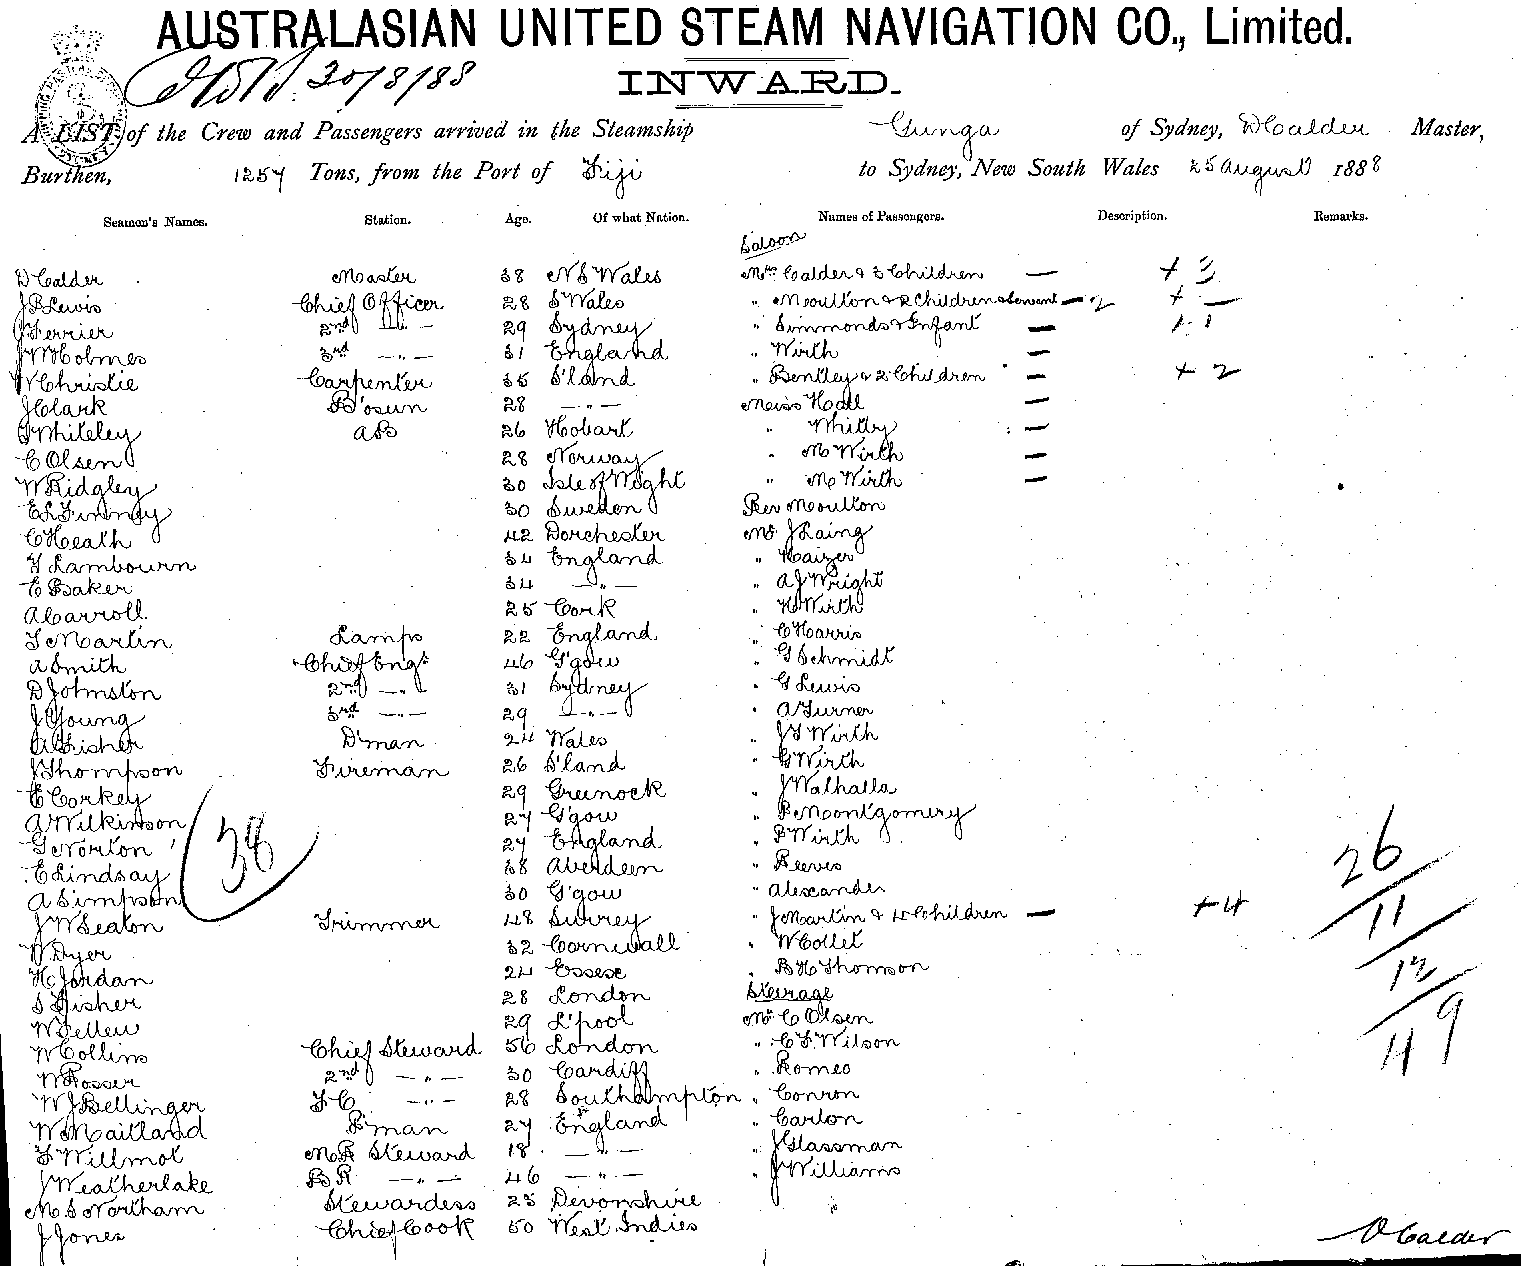 AUSTRALASIAN UNITED STEAM NAVIGATION CO., Limited.
20/8/88
INWARD.
A LIST of the Crew and Passengers arrived in the Steamship Gunga of Sydney, D Calder Master,
Burthen, 1257 Tons, from the Port of Fiji to Sydney, New South Wales 25 August 1888
Seamen's Names. Station. Age. Of what Nation. Names of Passengers. Description. Remarks.
Saloon
D Calder Master 38 N S Wales Mrs Calder & 3 Children — + 3
J B Lewis Chief Officer 28 S Wales " Moulton & 2 Children & Servant — 2 + —
J Ferrier 2nd — " — 29 Sydney " Simmonds & Infant — 1 . 1
J W Holmes 3rd — " — 31 England " Wirth —
W Christie Carpenter 35 S'land " Bentley & 2 Children — + 2
J Clark B'osun 28 — " — Miss Hall —
G Whiteley A B 26 Hobart " Whitby —
C Olsen 28 Norway " M Wirth —
W Ridgley 30 Isle of Wight " M Wirth —
E L Finney 30 Sweden Rev Moulton
C Heath 42 Dorchester Mr J Laing
H Lambourn 34 England " Haizer
E Baker 34 — " — " A J Wright
A Carroll 25 Cork " H Wirth
T Martin Lamps 22 England " C Harris
A Smith Chief Engr 46 G'gow " G Schmidt
D Johnston 2nd — " — 31 Sydney " G Lewis
J Young 3rd — " — 29 — " — " A Turner
A Fisher D'man 24 Wales " J T Wirth
J Thompson Fireman 26 S'land " G Wirth
E Corkey 29 Greenock " J Walhalla
A Wilkinson 27 G'gow " P Montgomery
G Norton 27 England " P Wirth
E Lindsay 38 Aberdeen " Reeves
A Simpson 30 G'gow " Alexander
38
J W Seaton Trimmer 48 Surrey " J Martin & 4 Children — + 4
W Dyer 32 Cornwall " W Collet
H Jordan 24 Essex " B H Thomson
S Fisher 28 London Steerage
W Sellew 29 L'pool Mr C Olsen
W Collins Chief Steward 56 London " C F Wilson
W Rosser 2nd — " — 30 Cardiff " Romeo
W J Bellinger F C — " — 28 Southampton " Conron
W Maitland P'man 27 England " Carlon
F Willmot M R Steward 18 — " — " J Glassman
J Weatherlake B R — " — 46 — " — " J Williams
M S Northam Stewardess 23 Devonshire
J Jones Chief Cook 50 West Indies
26
11
12
49
D Calder